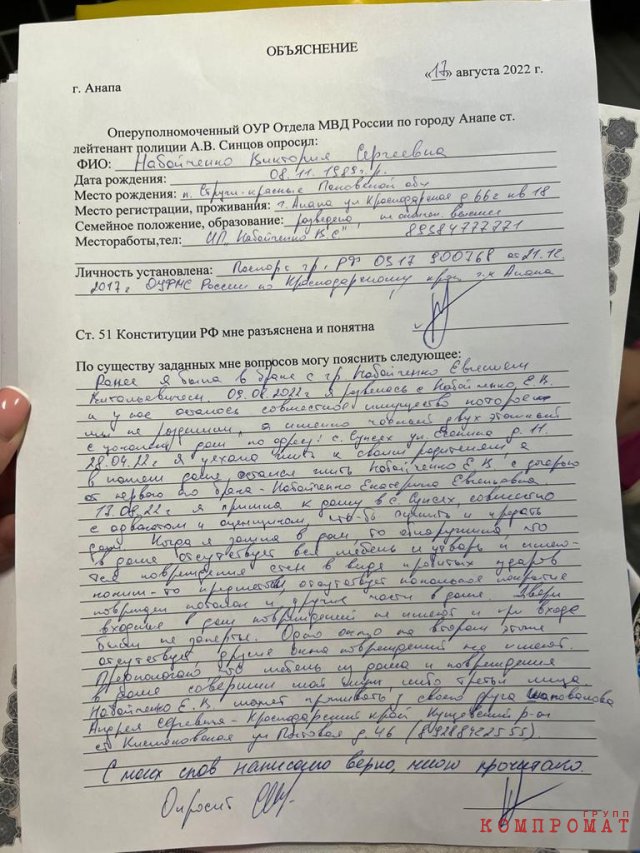 ОБЪЯСНЕНИЕ
г. Анапа
«17» августа 2022 г.
Оперуполномоченный ОУР Отдела МВД России по городу Анапе ст.
лейтенант полиции А.В. Синцов опросил:
ФИО: Набойченко Виктория Сергеевна
Дата рождения: 08.11.1989 г.р.
Место рождения: п. Струги-красные Псковской обл
Место регистрации, проживания: г. Анапа ул Краснодарская д 66 г кв 18
Семейное положение, образование: разведена,
Местоработы,тел: ИП "Набойченко В.С" 89384777771
Личность установлена: Паспорт гр. РФ 0317 900768 от 21.12.
2017г ОУФМС России по Краснодарскому краю, г-к Анапа
Ст. 51 Конституции РФ мне разъяснена и понятна
По существу заданных мне вопросов могу пояснить следующее:
Ранее я была в браке с гр. Набойченко Евгением
Витальевичем. 09.08.2022г я развелась с Набойченко Е.В.
и у нас осталось совместное имущество которое
мы не разделили, а именно двух этажный
с цокольем дом по адресу: с. Сукко ул. д. 11
28.04.22г я уехала жить к своим родителям, а
в нашем доме остался жить Набойченко Е.В, с дочерью
от первого брака - Набойченко Екатерина Евгеньевна
17.08.22г я пришла к дому в с. Сукко, совместно
с адвокатом и оценщиком, что-бы оценить и продать
Когда я зашла в дом то обнаружила, что
в доме отсутствует вся мебель и утварь и имеют-
ся повреждения стен в виде пробитых ударов
каким-то предметом, отсутствует напольное покрытие
поврежден потолок и другие части в доме. Двери
входные в дом повреждений не имеют и при входе
были не заперты. Одно окно на втором этаже
отсутствует, другие окна повреждений не имеют.
Предполагаю что мебель из дома и повреждения
в доме совершил мой муж либо третьи лица.
Набойченко Е.В. может проживать у своего друга Шаповалова
Андрея Сергеевича - Краснодарский край Кущевский р-он
ст. Кисляковская ул Почтовая д. 46 (89288422555)
С моих слов написано верно, мною прочитано.
Опросил
ГРУПП
КОМПРОМАТ